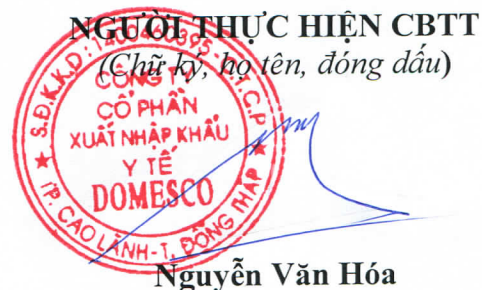 NGƯỜI THỰC HIỆN CBTT
(Chữ ký, họ tên, đóng dấu)
S.Đ.K.K.D: 1400460395 - C.T.C.P
CÔNG TY
CỔ PHẦN
XUẤT NHẬP KHẨU
Y TẾ
DOMESCO
TP. CAO LÃNH - T. ĐỒNG THÁP
Nguyễn Văn Hóa